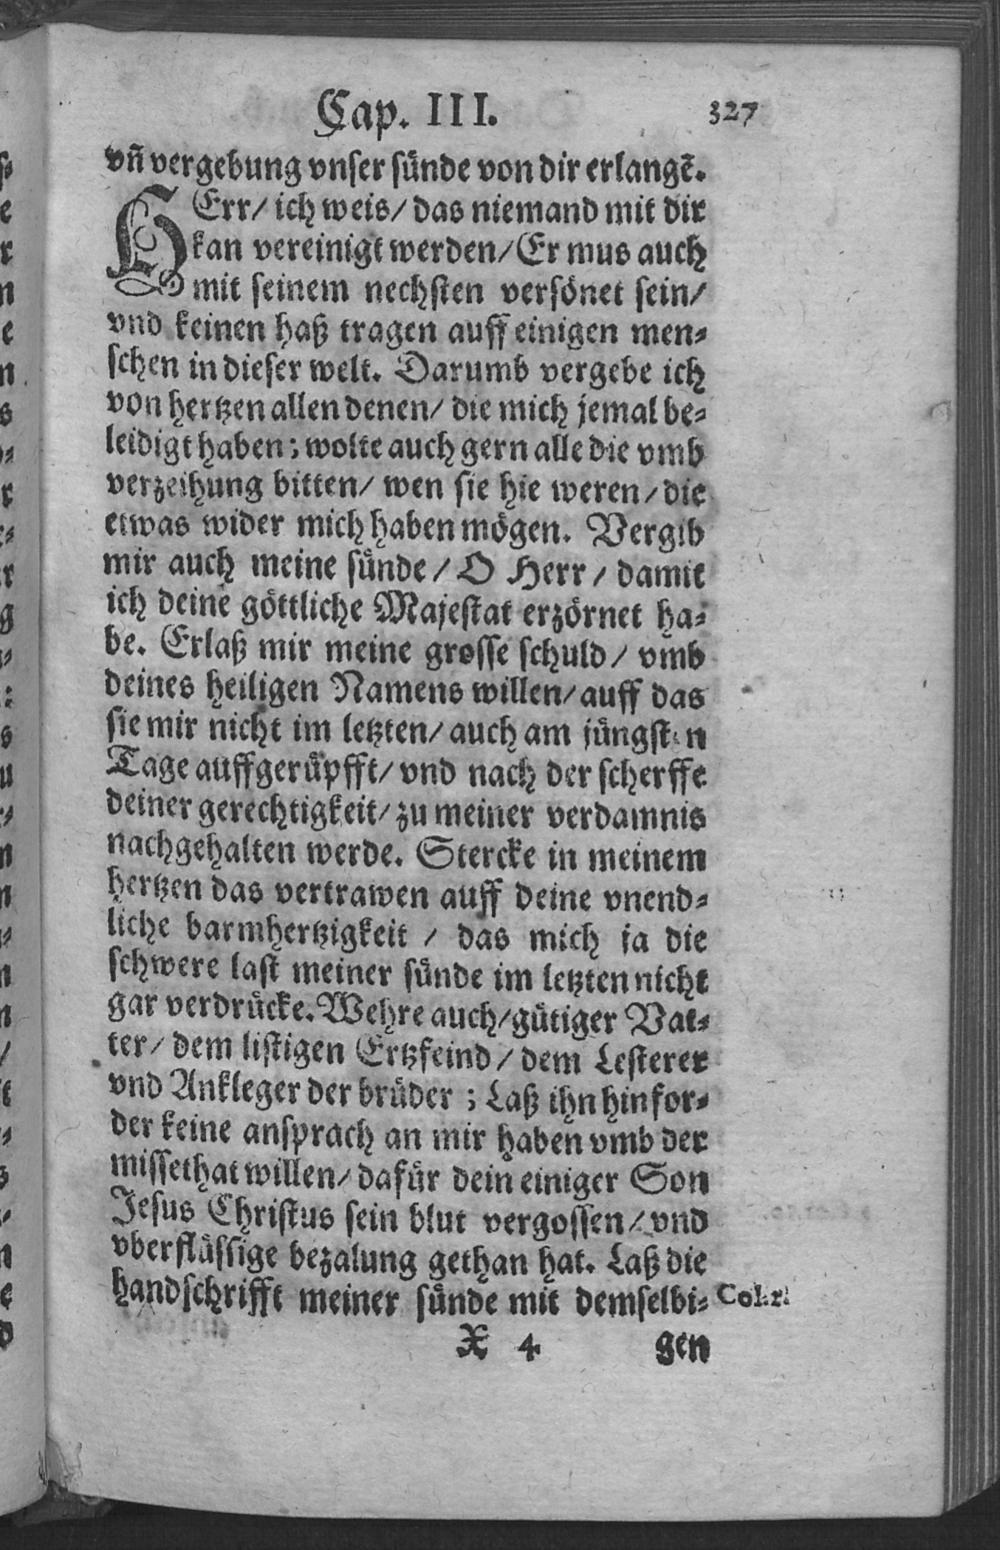 Cap. III. 327
vñ vergebung vnser sünde von dir erlangẽ.
HErr/ ich weis/ das niemand mit dir
kan vereinigt werden/ Er mus auch
mit seinem nechsten versönet sein/
vnd keinen haß tragen auff einigen men⸗
schen in dieser welt. Darumb vergebe ich
von hertzen allen denen/ die mich jemal be⸗
leidigt haben; wolte auch gern alle die vmb
verzeihung bitten/ wen sie hie weren/ die
etwas wider mich haben mögen. Vergib
mir auch meine sünde / O Herr / damit
ich deine göttliche Majestat erzörnet ha⸗
be. Erlaß mir meine grosse schuld/ vmb
deines heiligen Namens willen/ auff das
sie mir nicht im letzten/ auch am jüngsten
Tage auffgerüpfft/ vnd nach der scherffe
deiner gerechtigkeit/ zu meiner verdamnis
nachgehalten werde. Stercke in meinem
hertzen das vertrawen auff deine vnend⸗
liche barmhertzigkeit / das mich ja die
schwere last meiner sünde im letzten nicht
gar verdrücke. Wehre auch/ gütiger Vat⸗
ter/ dem listigen Ertzfeind/ dem Lesterer
vnd Ankleger der brüder ; Laß ihn hinfor⸗
der keine ansprach an mir haben vmb der
missethat willen/ dafür dein einiger Son
Jesus Christus sein blut vergossen/ vnd
vberflüssige bezalung gethan hat. Laß die
handschrifft meiner sünde mit demselbi⸗
X 4 gen